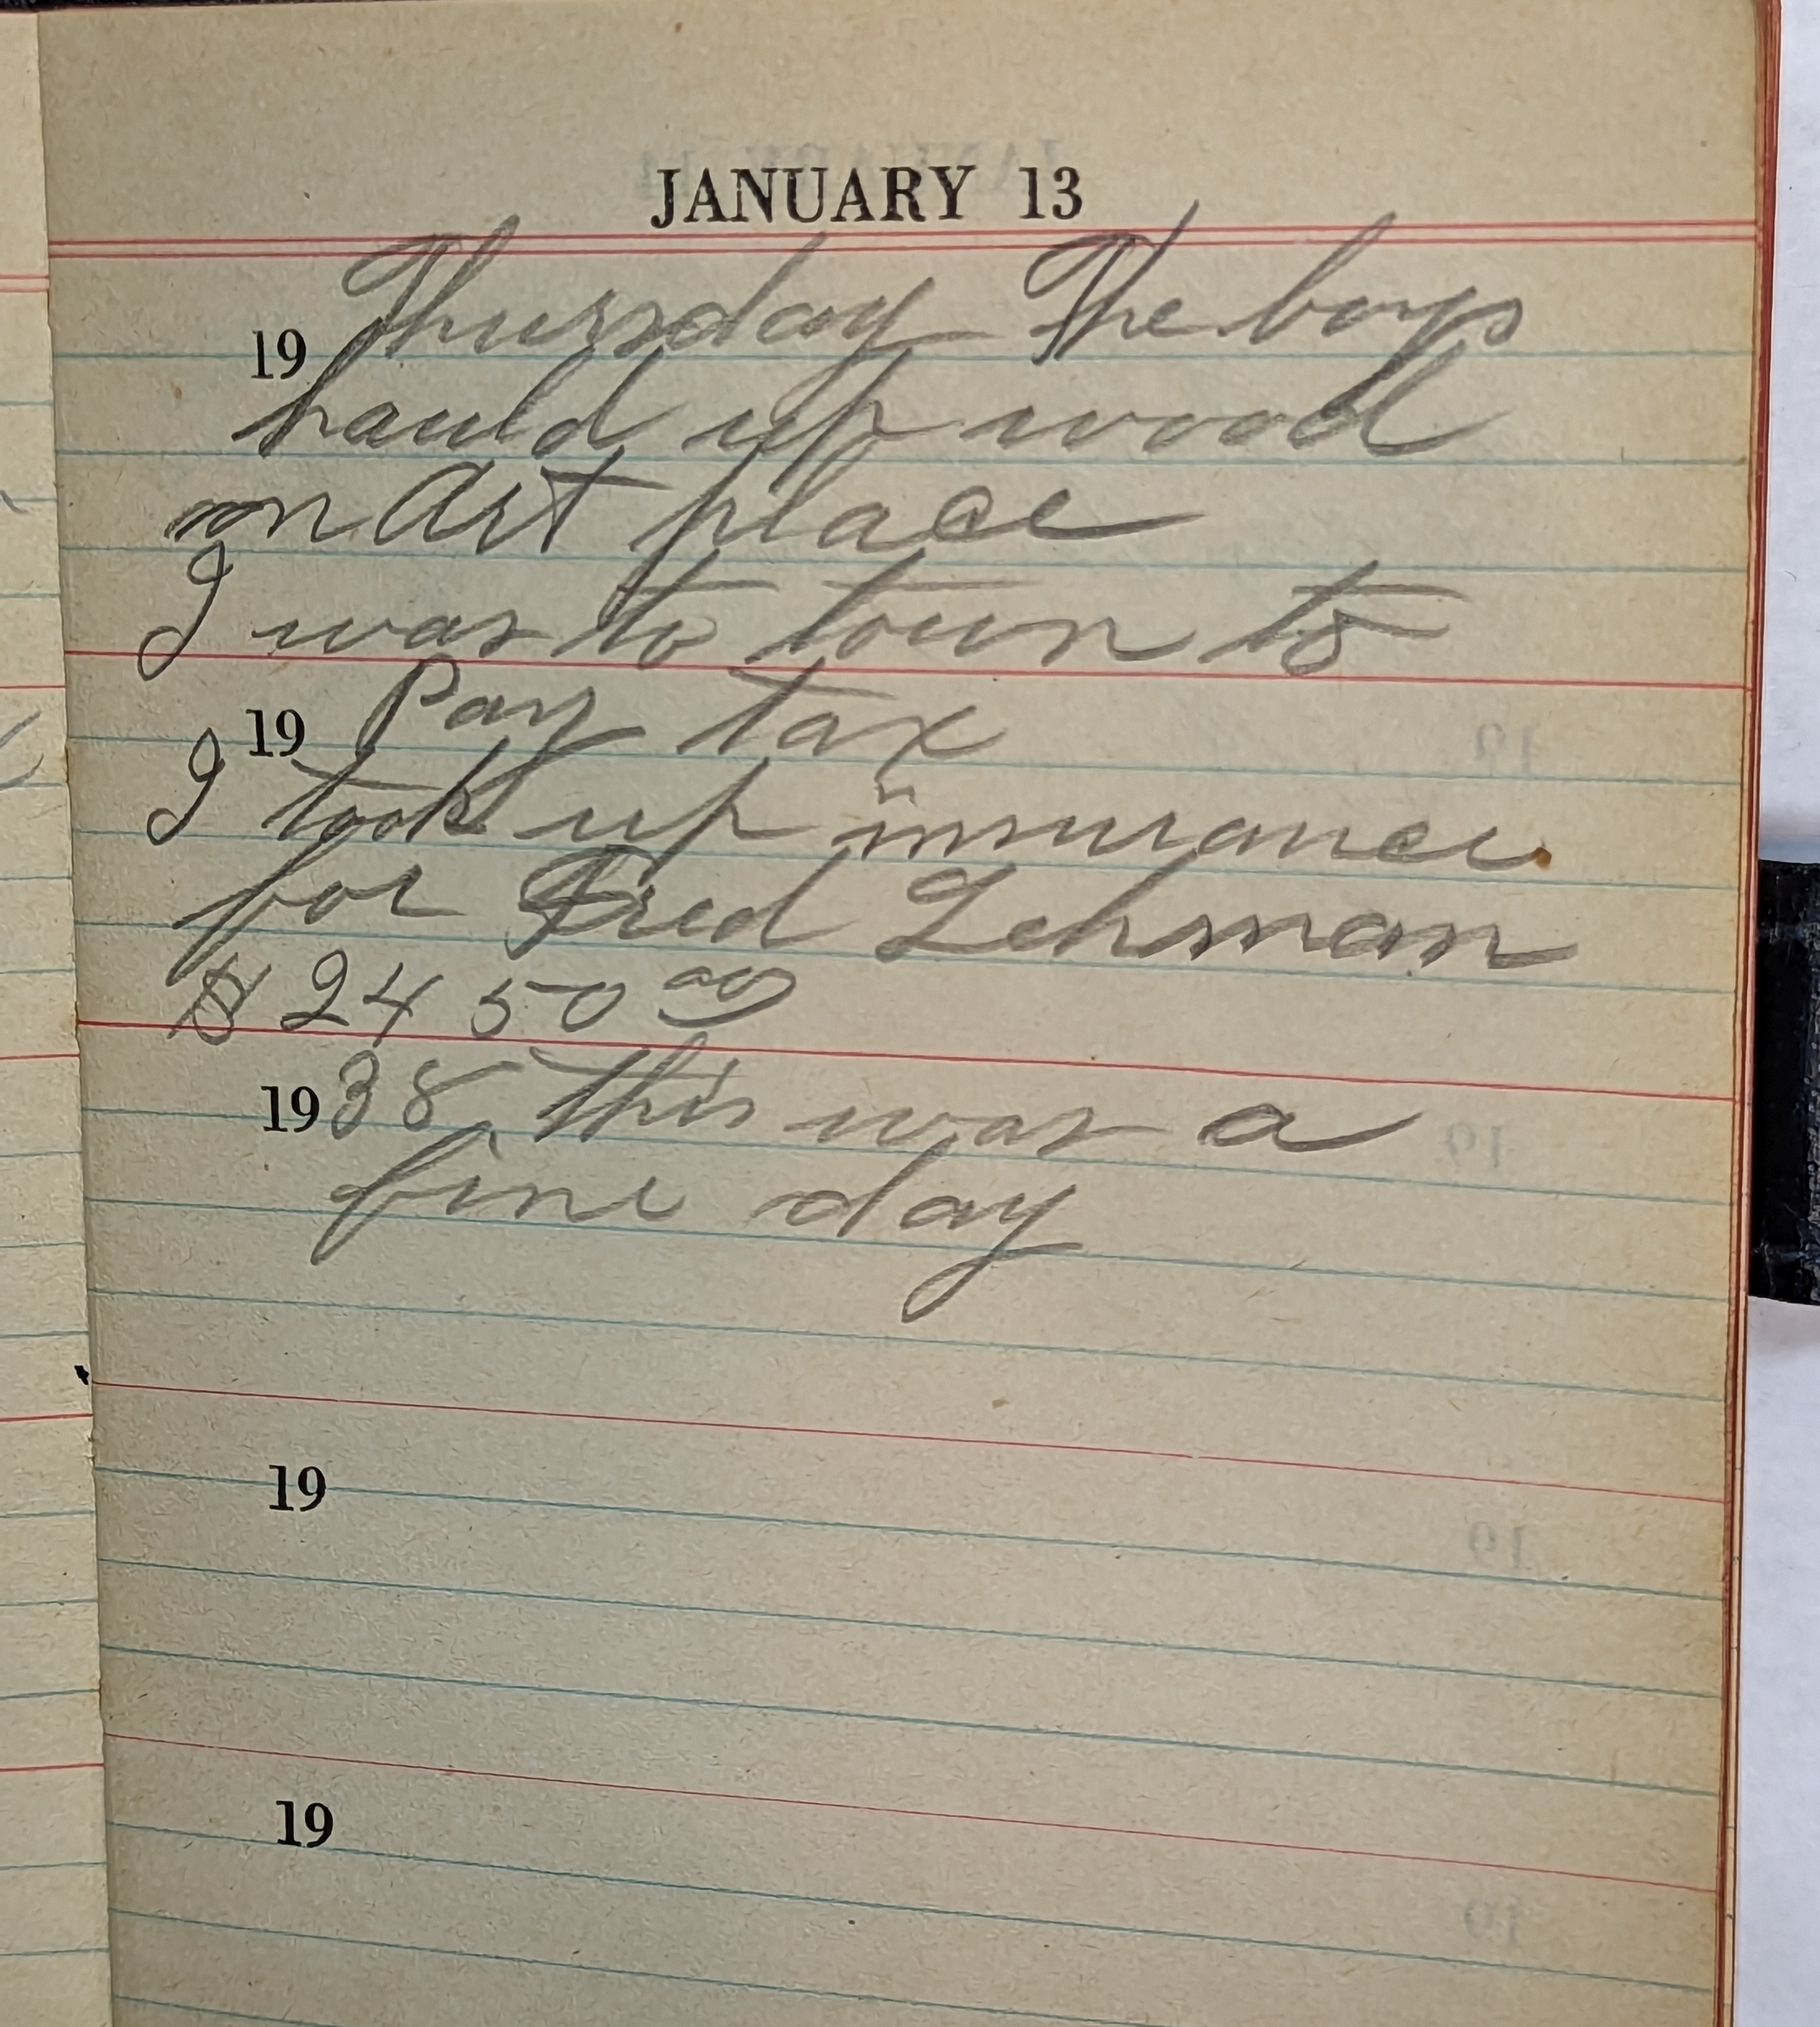 JANUARY 13
19 Thursday The boys
hauld up wood
on Art place
I was to town to
19 Pay tax
I took up insurance
for Fred Lehman
$ 24 50 00
1938 this was a
fine day
19
19